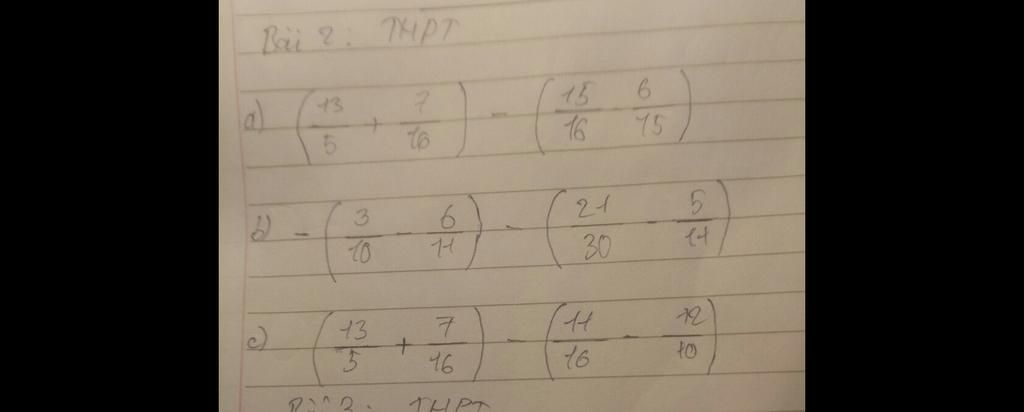 Bài 2: THPT
a) (13/5 + 7/16) - (15/16 - 6/15)
b) - (3/10 - 6/11) - (21/30 - 5/11)
c) (13/5 + 7/16) - (11/16 - 12/10)
Bài 3: THPT